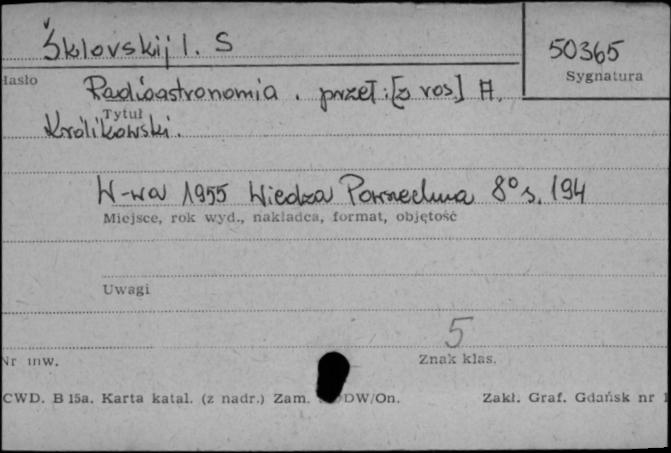 Šklovskij I. S
50365
Hasło
Sygnatura
Radioastronomia. przeł: [z ros] A.
Tytuł
Królikowski.
W-wa 1955 Wiedza Powszechna 8° s. 194
Miejsce, rok wyd., nakładca, format, objętość
Uwagi
5
Nr inw.
Znak klas.
CWD. B 15a. Karta katal. (z nadr.) Zam. DW/On.
Zakł. Graf. Gdańsk nr 1